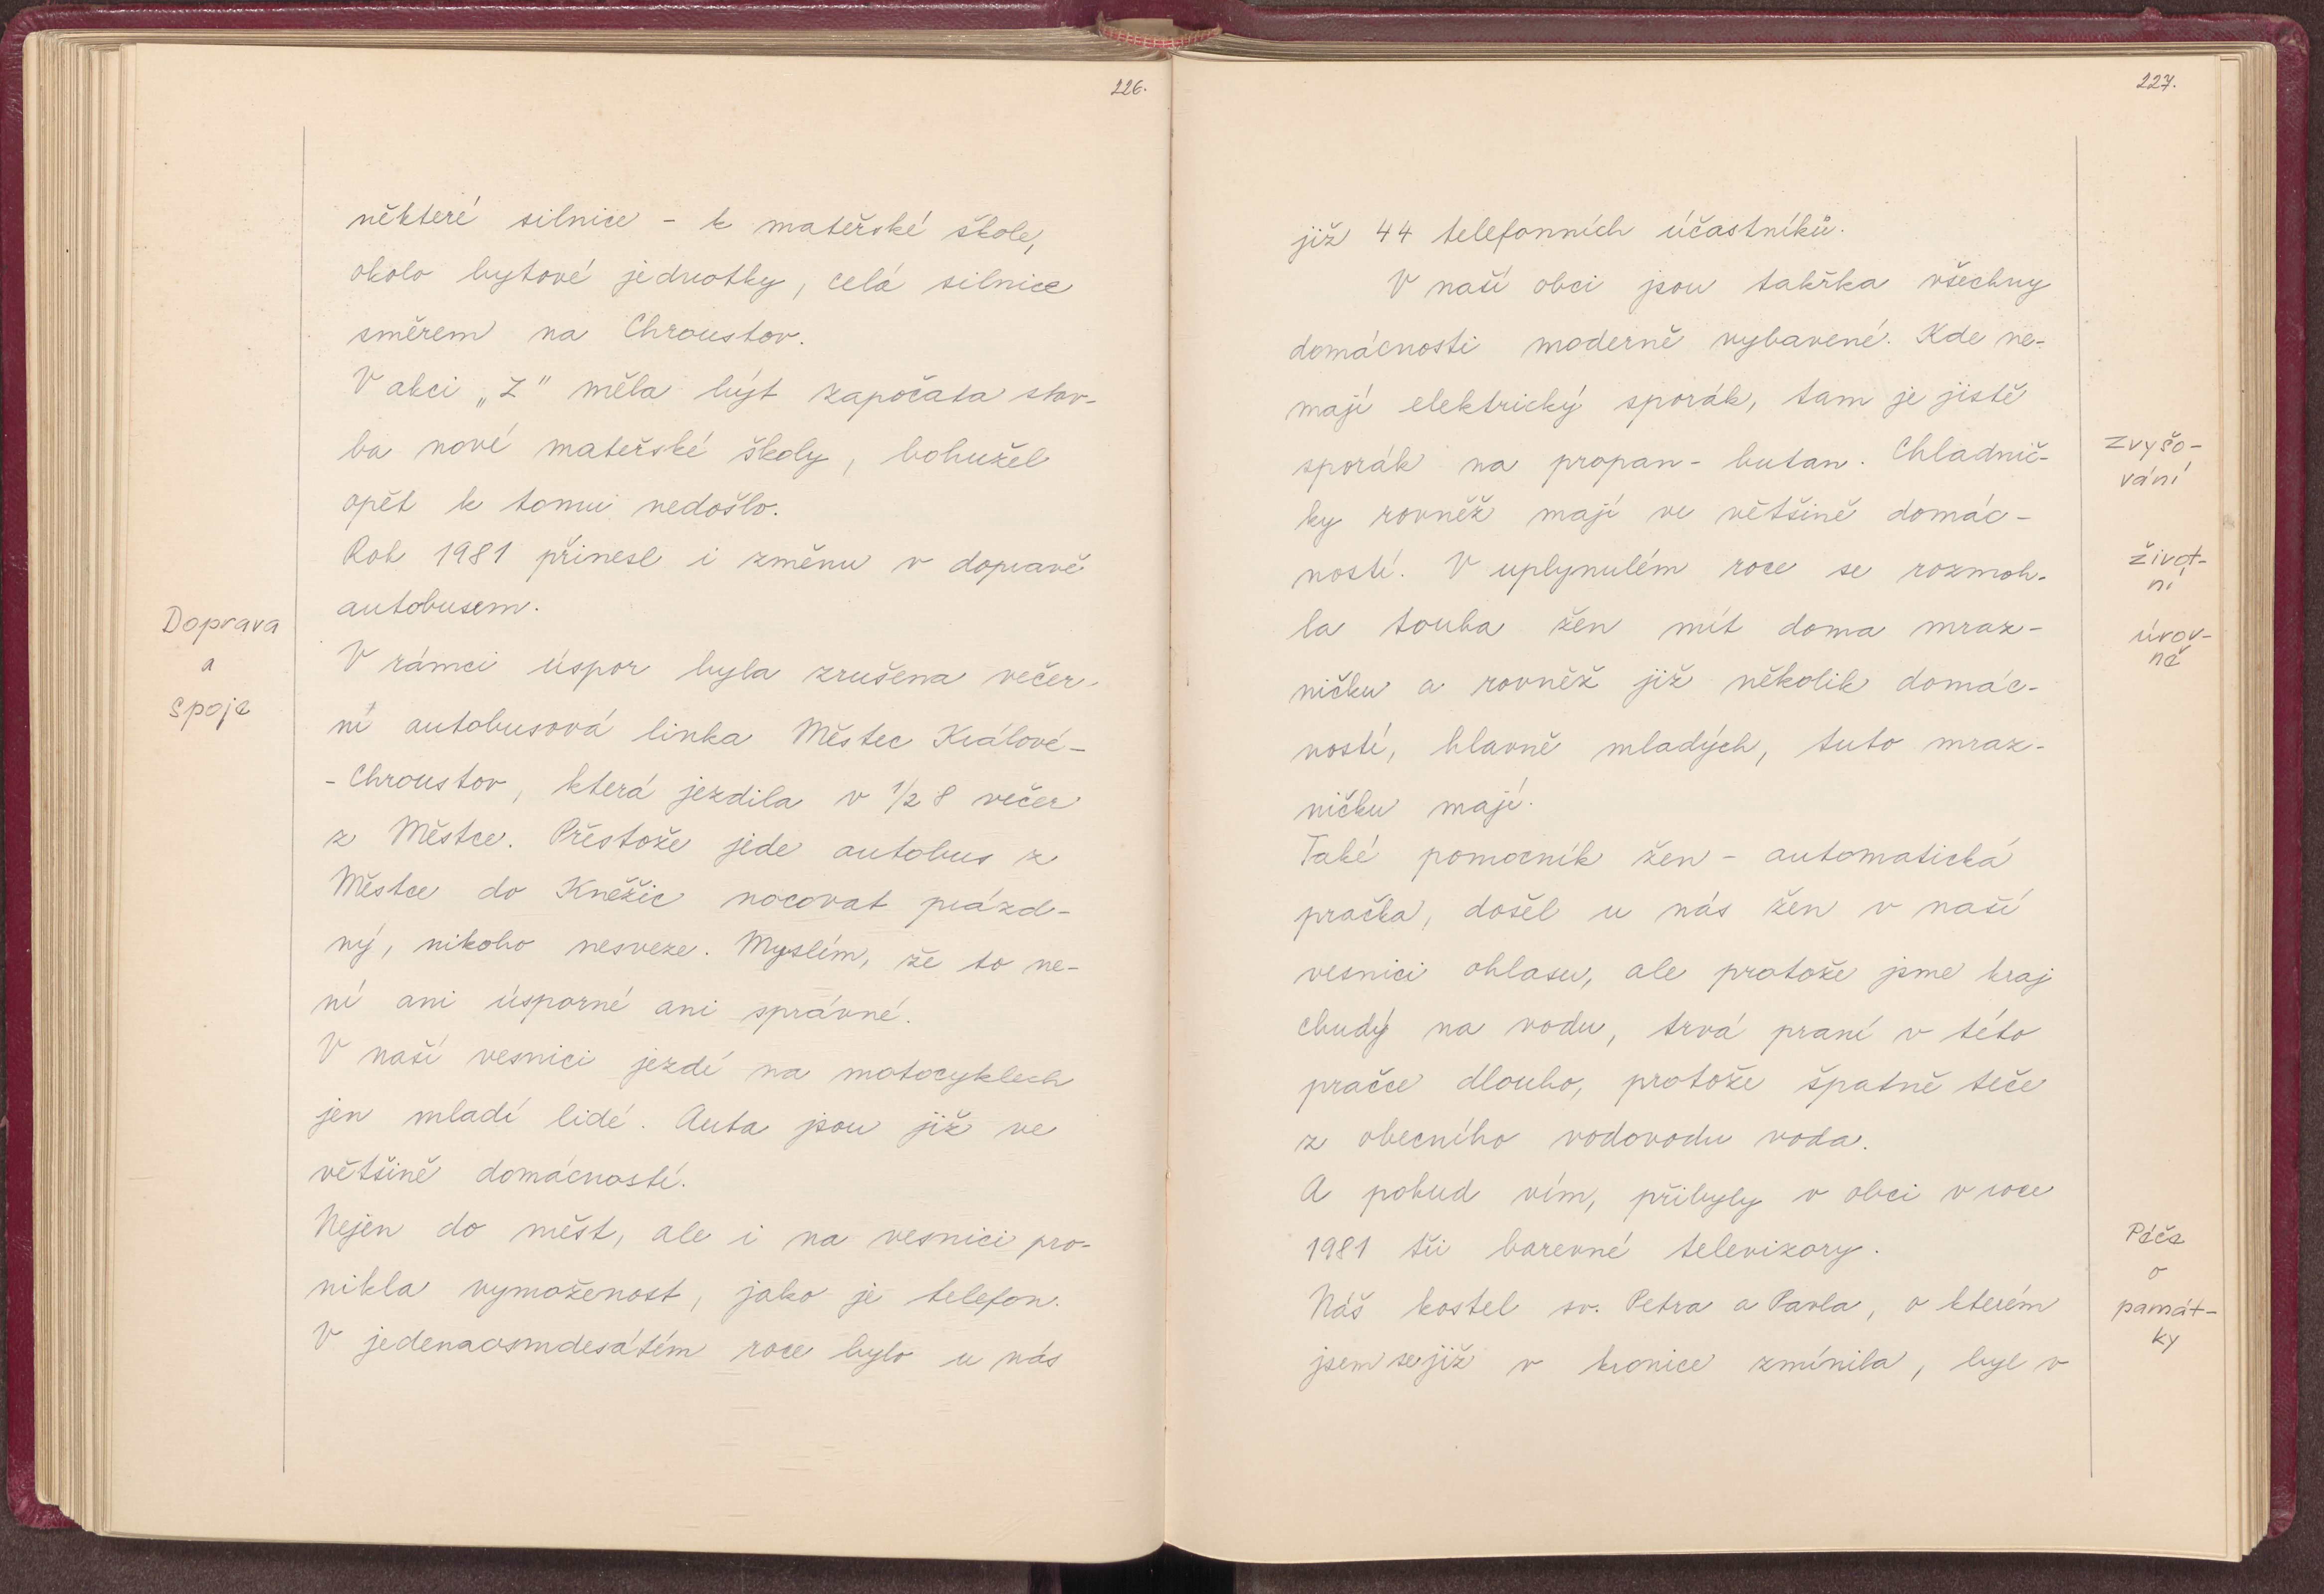 226.
některé silnice - k mateřské škole,
okolo bytové jednotky, celá silnice
směrem na Chroustov.
V akci „Z" měla být započata stav-
ba nové mateřské školy, bohužel
opět k tomu nedošlo.
Rok 1981 přinesl i změnu v dopravě
autobusem.
Doprava
a
spoje
V rámci úspor byla zrušena večer-
ní autobusová linka Městec Králové-
- Chroustov, která jezdila v 1/2 8 večer
z Městce. Přestože jede autobus z
Městce do Kněžic nocovat prázd-
ný, nikoho nesveze. Myslím, že to ne-
ní ani úsporné ani správné.
V naší vesnici jezdí na motocyklech
jen mladí lidé. Auta jsou již ve
většině domácností.
Nejen do měst, ale i na vesnici pro-
nikla vymoženost, jako je telefon.
V jedenaosmdesátém roce bylo u nás
227.
již 44 telefonních účastníků.
V naší obci jsou takřka všechny
domácnosti moderně vybavené. Kde ne-
mají elektrický sporák, tam je jistě
sporák na propan - butan. Chladnič-
ky rovněž mají ve většině domác-
ností. V uplynulém roce se rozmoh-
la touha žen mít doma mraz-
ničku a rovněž již několik domác-
ností, hlavně mladých, tuto mraz-
ničku mají.
Zvyšo-
vání
život-
ní
úrov-
ně
Také pomocník žen - automatická
pračka, došel u nás žen v naší
vesnici ohlasu, ale protože jsme kraj
chudý na vodu, trvá praní v této
pračce dlouho, protože špatně teče
z obecního vodovodu voda.
A pokud vím, přibyly v obci v roce
1981 tři barevné televizory.
Péče
o
památ-
ky
Náš kostel sv. Petra a Pavla, o kterém
jsem se již v kronice zmínila, byl v